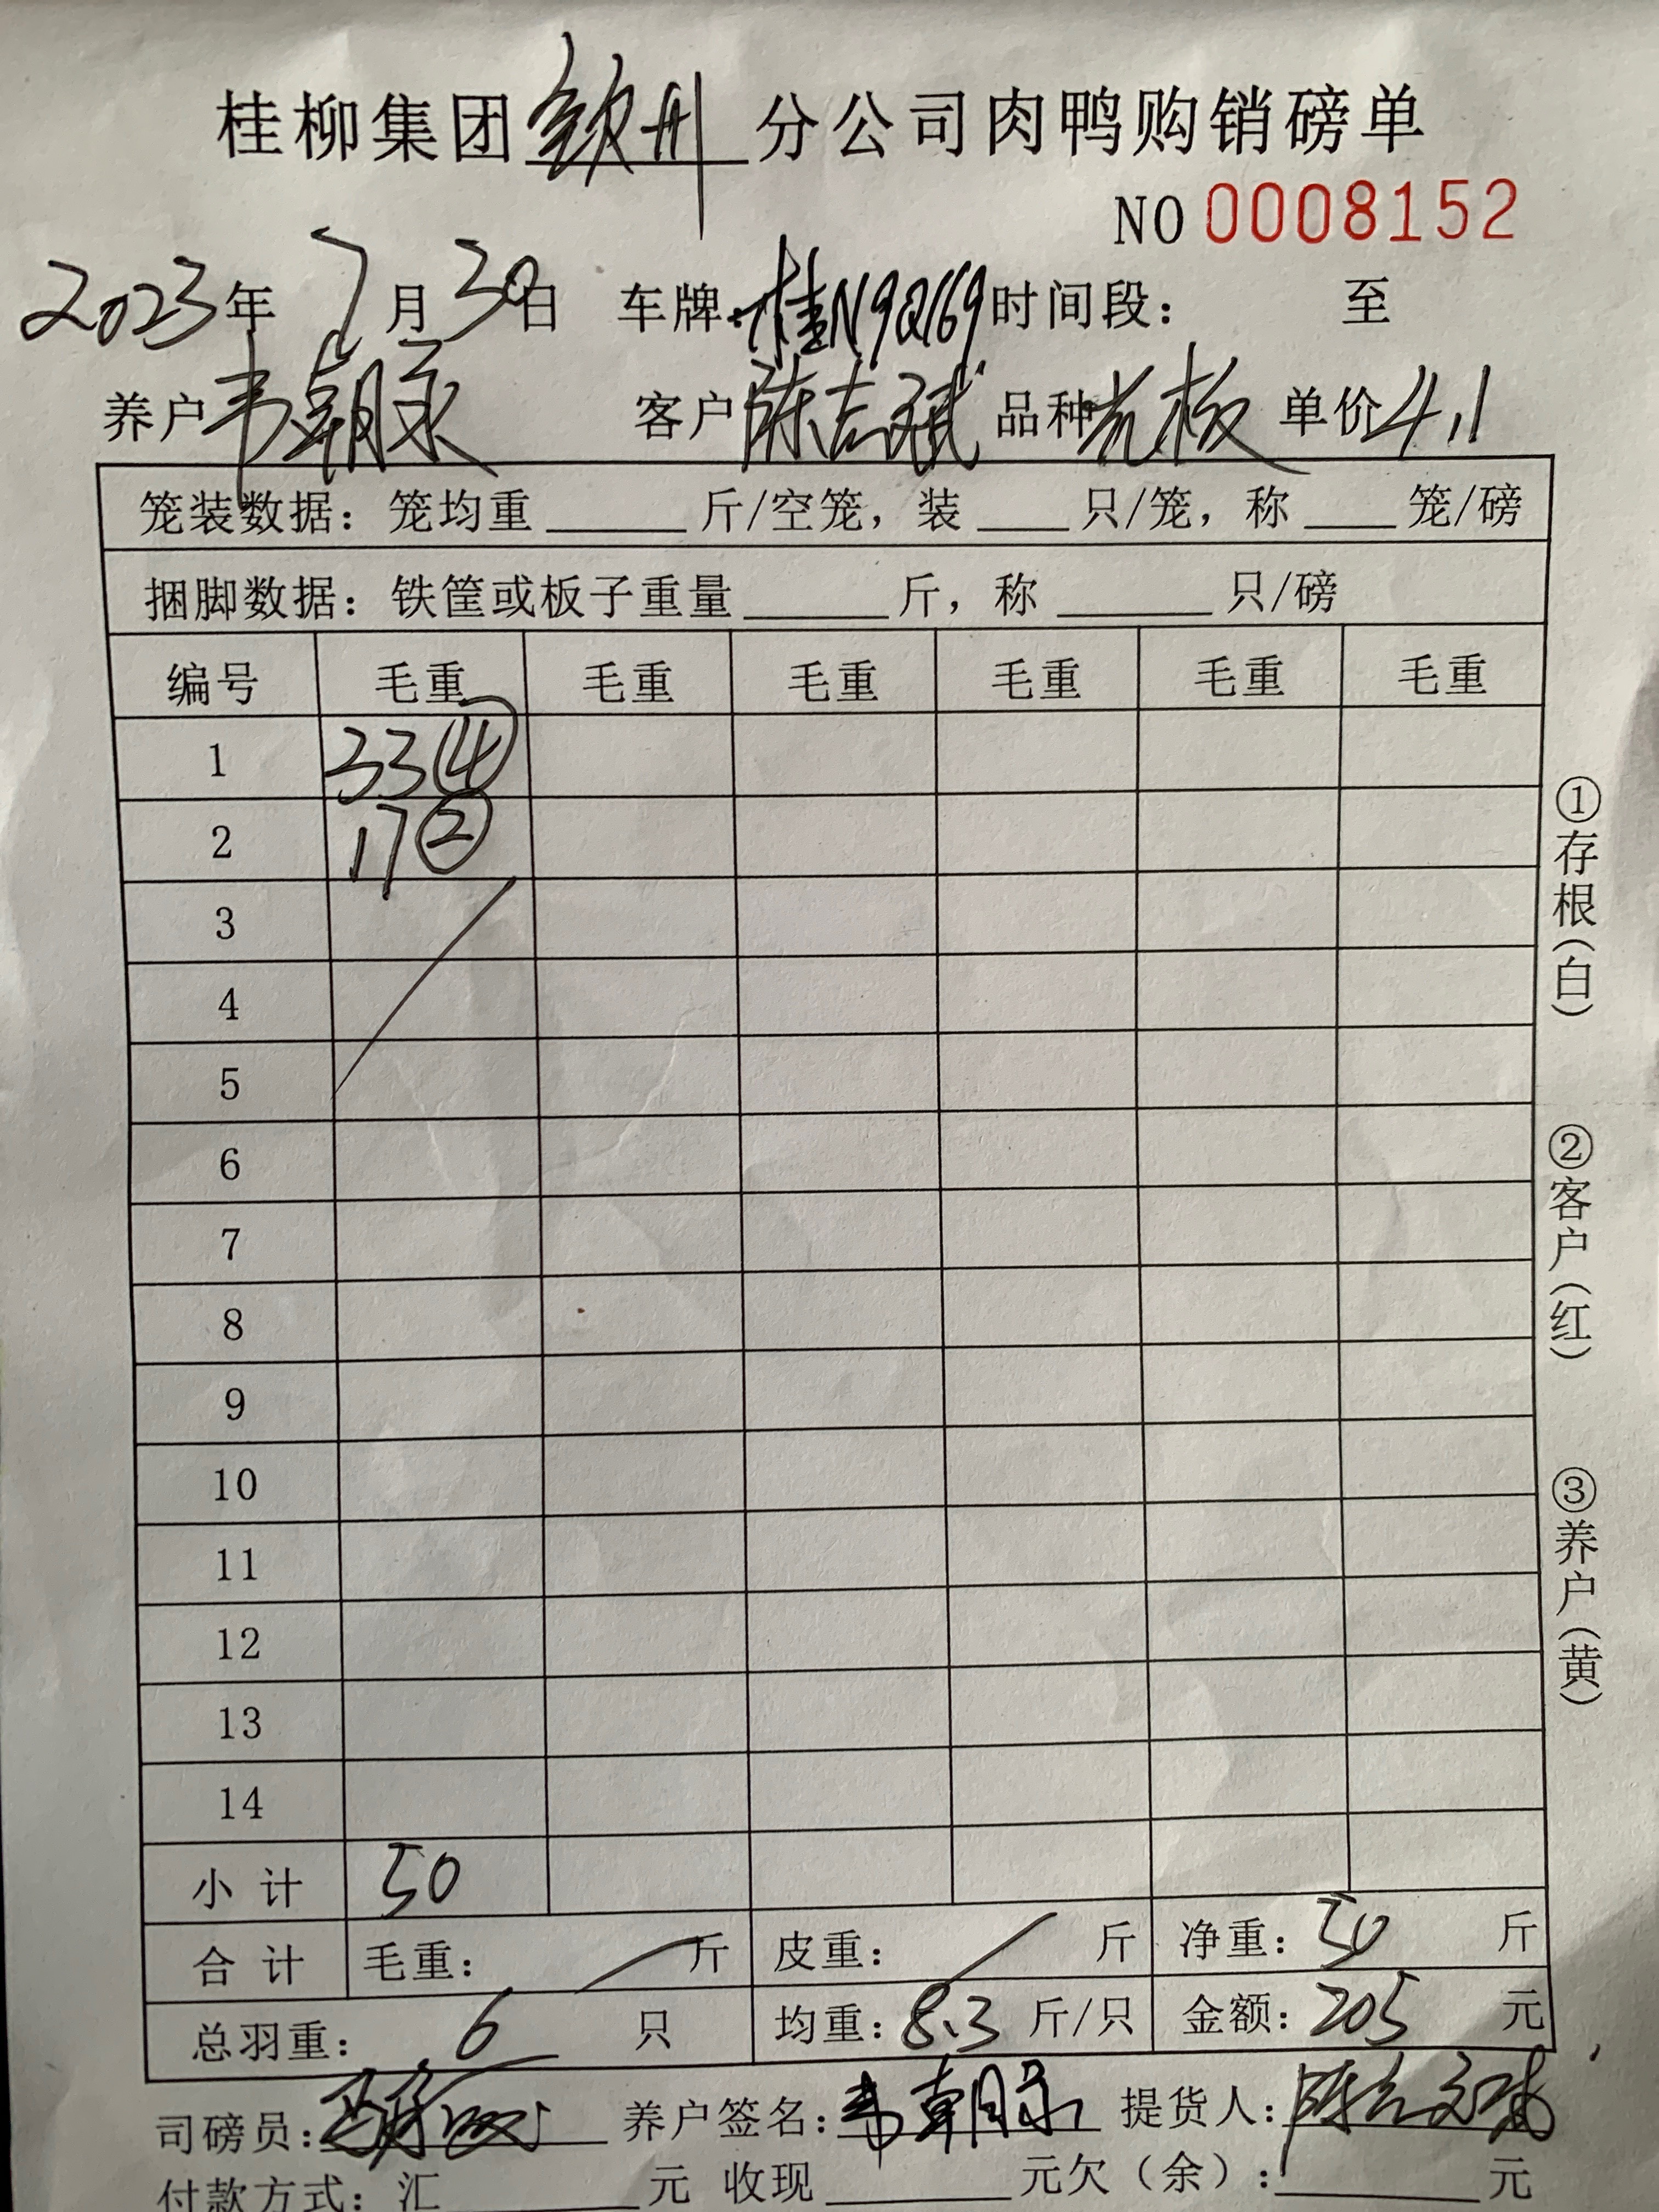 桂柳集团钦州分公司肉鸭购销磅单
NO 0008152
2023年 7月30日 车牌:桂N9Q169时间段: 至
养户韦朝 客户陈志斌 品种光板 单价4.1
笼装数据:笼均重 斤/空笼,装 只/笼,称 笼/磅
捆脚数据:铁筐或板子重量 斤,称 只/磅
编号 毛重 毛重 毛重 毛重 毛重 毛重
1 33④
2 17②
3
4
5
6
7
8
9
10
11
12
13
14
小计 50
合计 毛重: 斤 皮重: 斤 净重:50 斤
总羽重: 6 只 均重:8.3 斤/只 金额:205 元
司磅员: 养户签名:韦朝 提货人:陈志斌
付款方式:汇 元 收现 元欠(余): 元
①存根(白)
②客户(红)
③养户(黄)